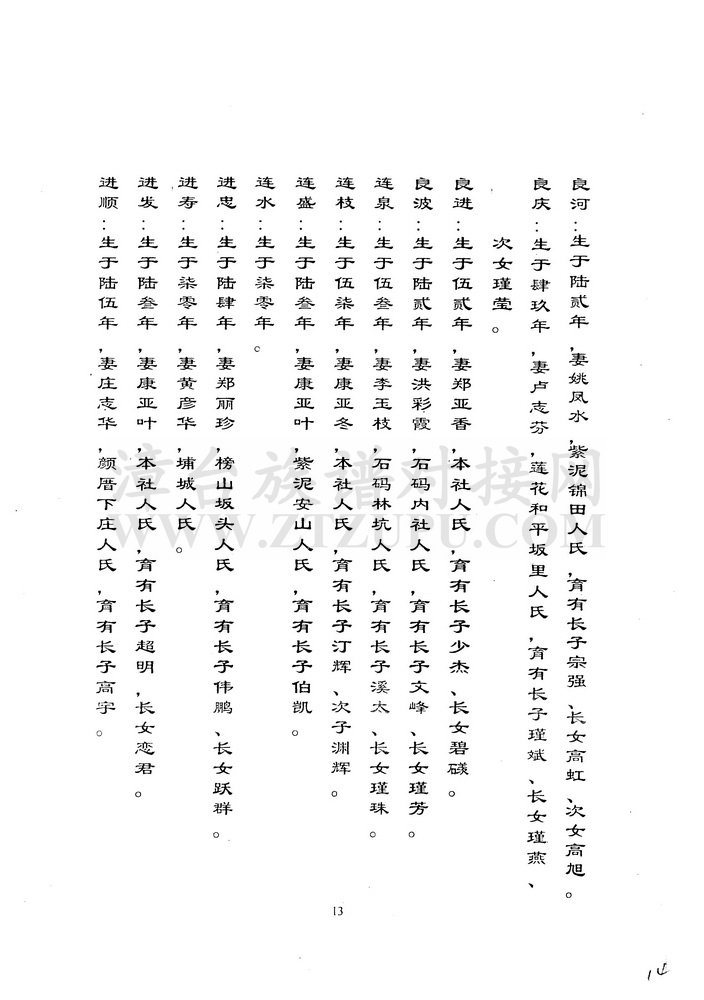 良河：生于陆贰年，妻姚凤水，紫泥锦田人氏，育有长子宗强、长女高虹、次女高旭。
良庆：生于肆玖年，妻卢志芬，莲花和平坂里人氏，育有长子瑾斌、长女瑾燕、
次女瑾莹。
良进：生于伍贰年，妻郑亚香，本社人氏，育有长子少杰、长女碧磯。
良波：生于陆贰年，妻洪彩霞，石码内社人氏，育有长子文峰、长女瑾芳。
连泉：生于伍叁年，妻李玉枝，石码林坑人氏，育有长子溪太、长女瑾珠。
连枝：生于伍柒年，妻康亚冬，本社人氏，育有长子汀辉、次子渊辉。
连盛：生于陆叁年，妻康亚叶，紫泥安山人氏，育有长子伯凯。
连水：生于柒零年。
进忠：生于陆肆年，妻郑丽珍，榜山坂头人氏，育有长子伟鹏、长女跃群。
进寿：生于柒零年，妻黄彦华，埔城人氏。
进发：生于陆叁年，妻康亚叶，本社人氏，育有长子超明，长女恋君。
进顺：生于陆伍年，妻庄志华，颜厝下庄人氏，育有长子高宇。
漳台族谱对接网
WWW.ZTZUPU.COM
13
14